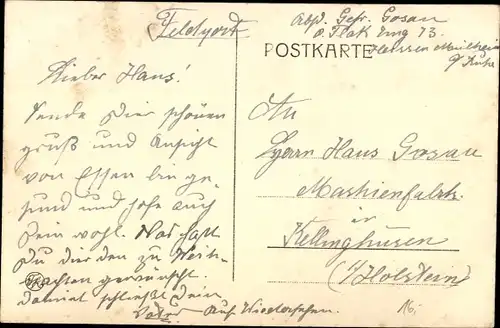 Feldpost
Abs. Gefr. Gosau
POSTKARTE
Essen Mülheim
Lieber Hans!
Sende Dir schönen
Gruß und Ansicht
von Essen bin ge-
sund und hofe auch
Dein wohl. Was hast
Du dir den zu Weih-
nachten gewünscht.
Dalmat schließt Dein
Vater Auf Wiedersehen.
An
Herrn Hans Gosau
Maschienfabrk.
in
Kellinghusen
(Holstein)
16.